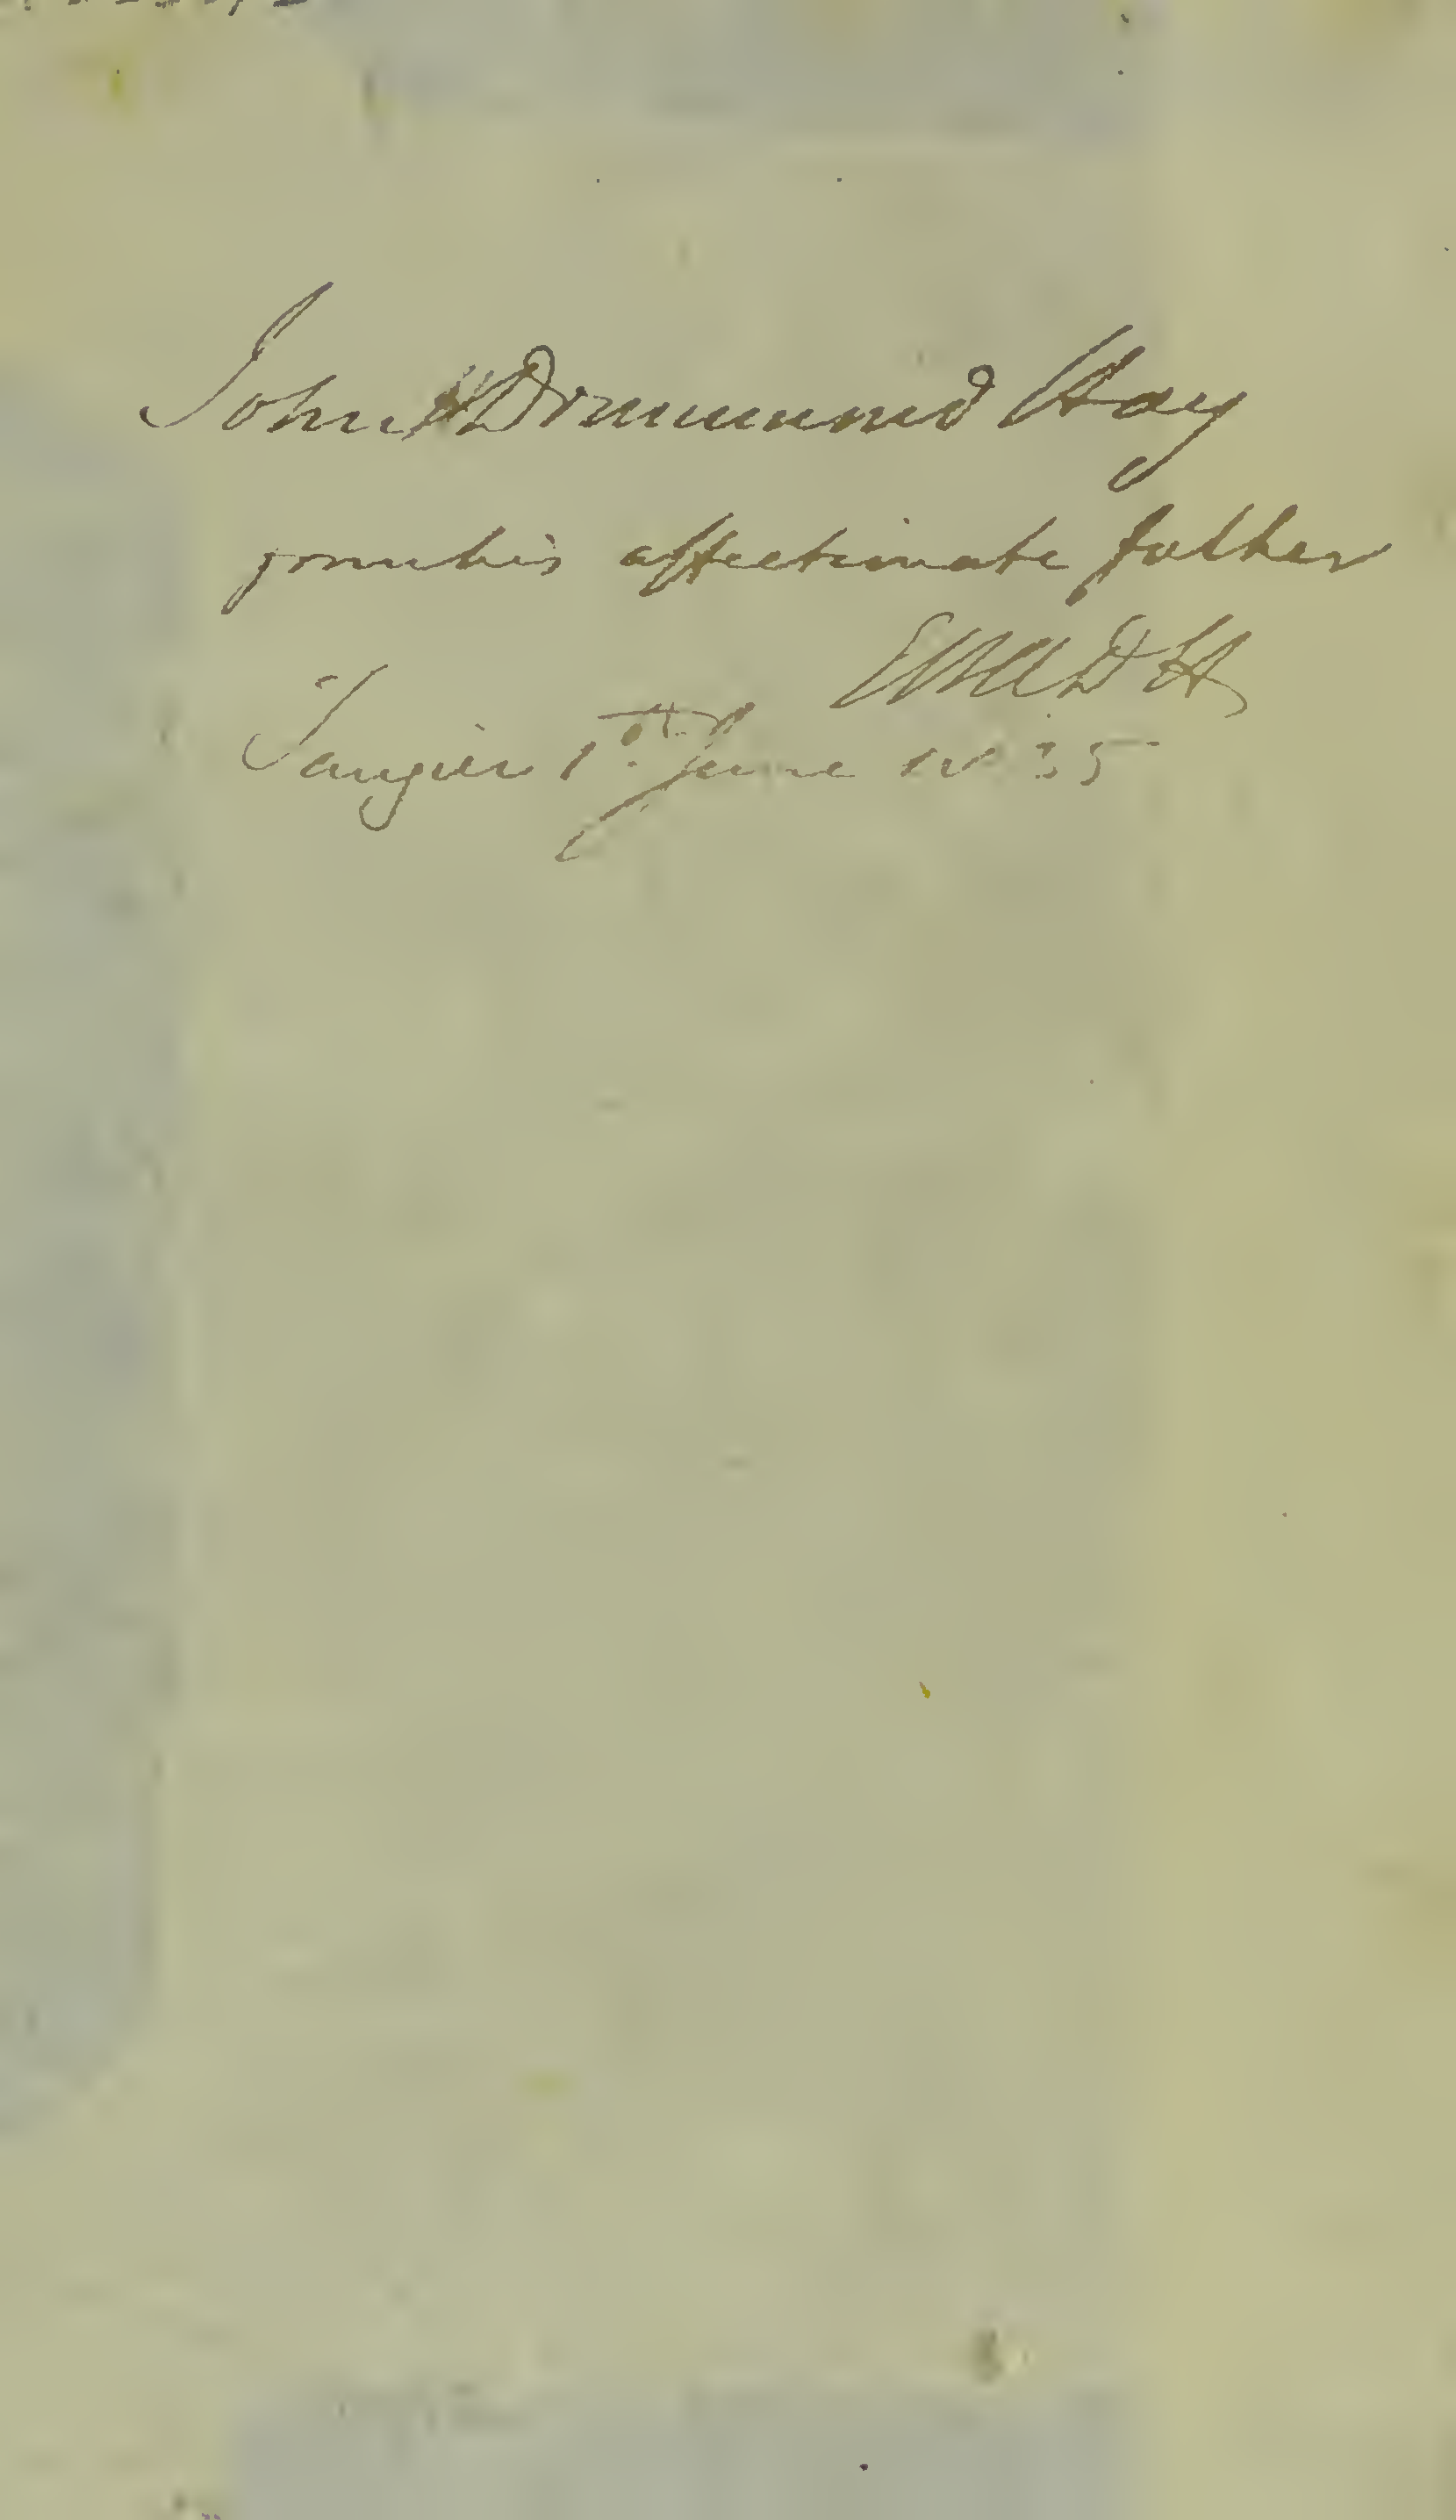 John H Drummond Hay
from his affectionate father
EWADH
Tangier 1st June 1835